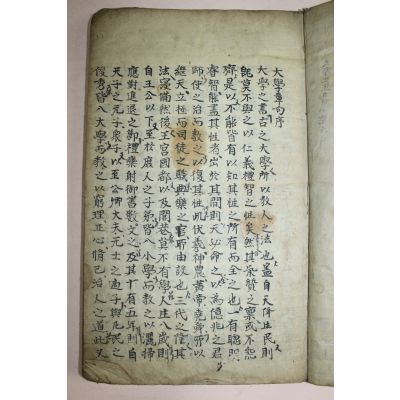 大學章句序
大學之書古之大學所以敎人之法也蓋自天降生民則
旣莫不與之以仁義禮智之性矣然其氣質之稟或不能
齊是以不能皆有以知其性之所有而全之也一有聰明
睿智能盡其性者出於其間則天必命之以爲億兆之君
師使之治而敎之以復其性此伏羲神農黃帝堯舜所以
繼天立極而司徒之職典樂之官所由設也三代之隆其
法寖備然後王宮國都以及閭巷莫不有學人生八歲則
自王公以下至於庶人之子弟皆入小學而敎之以灑掃
應對進退之節禮樂射御書數之文及其十有五年則自
天子之元子衆子以至公卿大夫元士之適子與凡民之
俊秀皆入大學而敎之以窮理正心修己治人之道此又